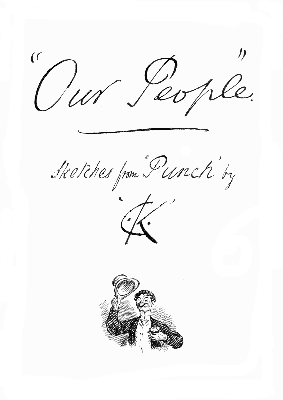 "Our People".
Sketches from 'Punch' by
'CK'